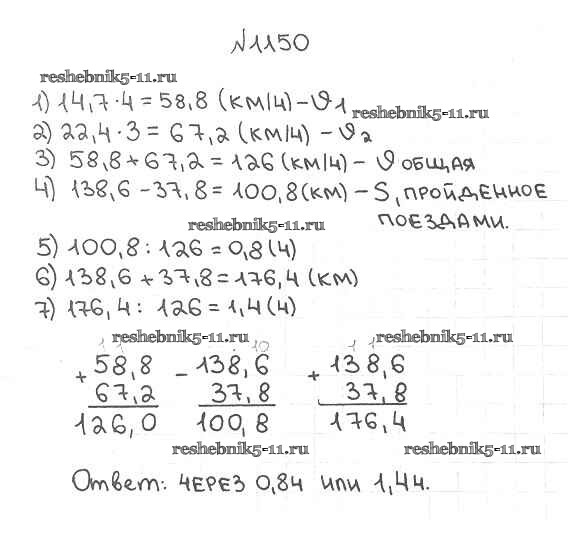 №1150
reshebnik5-11.ru
1) 14,7·4=58,8 (км/ч)-υ1
reshebnik5-11.ru
2) 22,4·3=67,2(км/ч) - υ2
3) 58,8+67,2=126(км/ч)- υ общая
4) 138,6-37,8=100,8(км) - S, пройденное
поездами.
reshebnik5-11.ru
5) 100,8:126=0,8(ч)
6) 138,6+37,8=176,4(км)
7) 176,4: 126=1,4(ч)
reshebnik5-11.ru reshebnik5-11.ru
1 1 10 1 1
+ 58,8 - 138,6 + 138,6
67,2 37,8 37,8
126,0 100,8 176,4
reshebnik5-11.ru reshebnik5-11.ru
Ответ: через 0,8ч или 1,4ч.